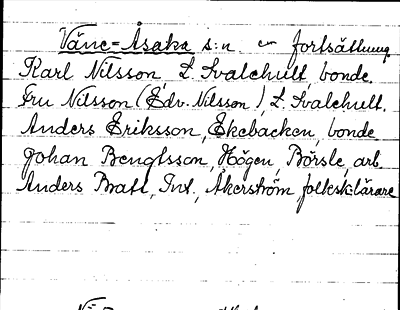 Väne-Åsaka s:n - fortsättning
Karl Nilsson L. Svalehult, bonde.
Fru Nilsson (Edv. Nilsson), L. Svalehult.
Anders Eriksson, Ekebacken, bonde
Johan Bengtsson, Högen, Börsle, arb.
Anders Bratt, Int., Åkerström, folksk.lärare